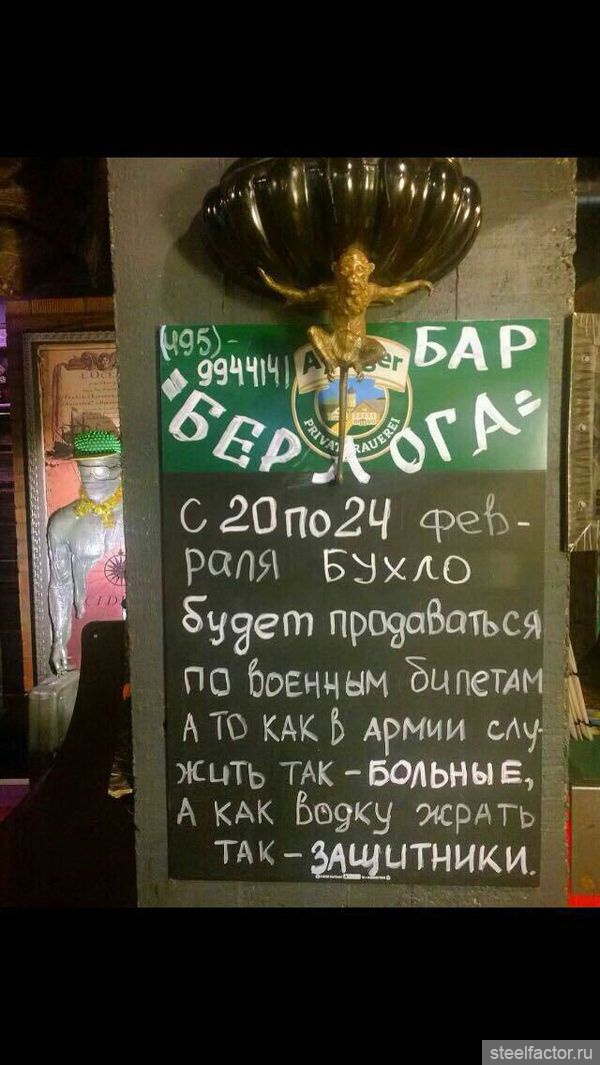 (495)-
9944141
БАР
"БЕРЛОГА"
PRIVATBRAUEREI
С 20 по 24 фев-
раля БУХЛО
будет продаваться
по военным билетам
А ТО КАК В АРМИИ слу-
жить ТАК - БОЛЬНЫЕ,
А КАК водку ЖРАТЬ
ТАК - ЗАЩИТНИКИ.
steelfactor.ru